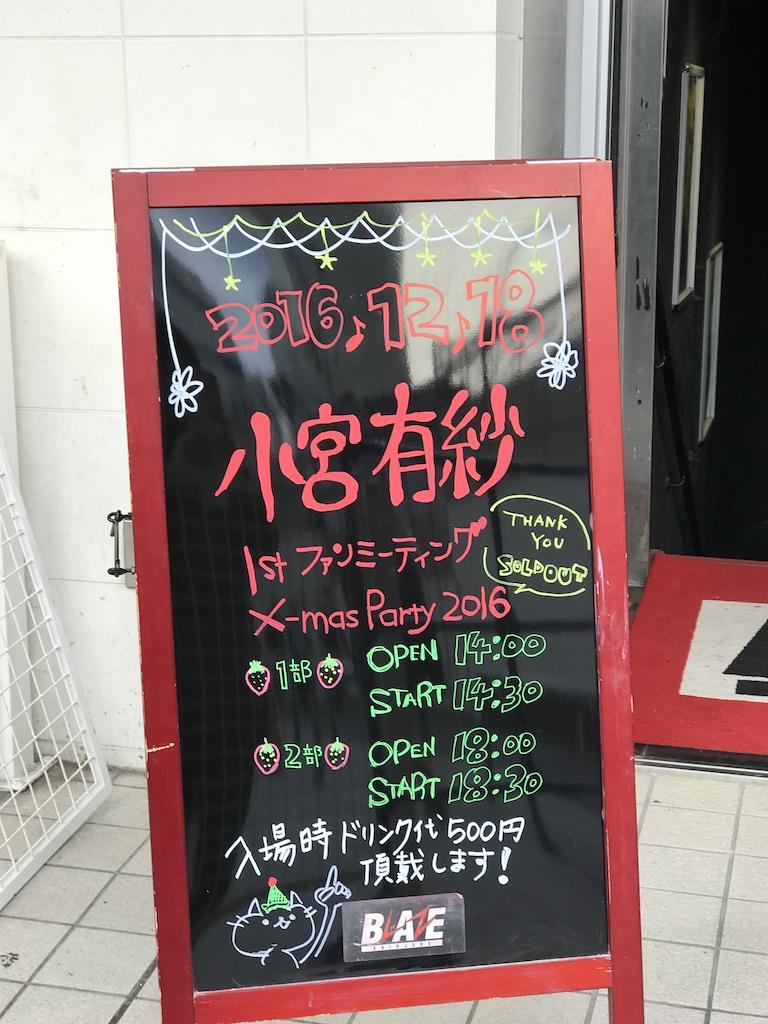 2016♪12♪18
小宮有紗
1st ファンミーティング
THANK
YOU
SOLDOUT
X-mas Party 2016
1部 OPEN 14:00
START 14:30
2部 OPEN 18:00
START 18:30
入場時ドリンク代500円
頂戴します!
BLAZE
SHINJUKU